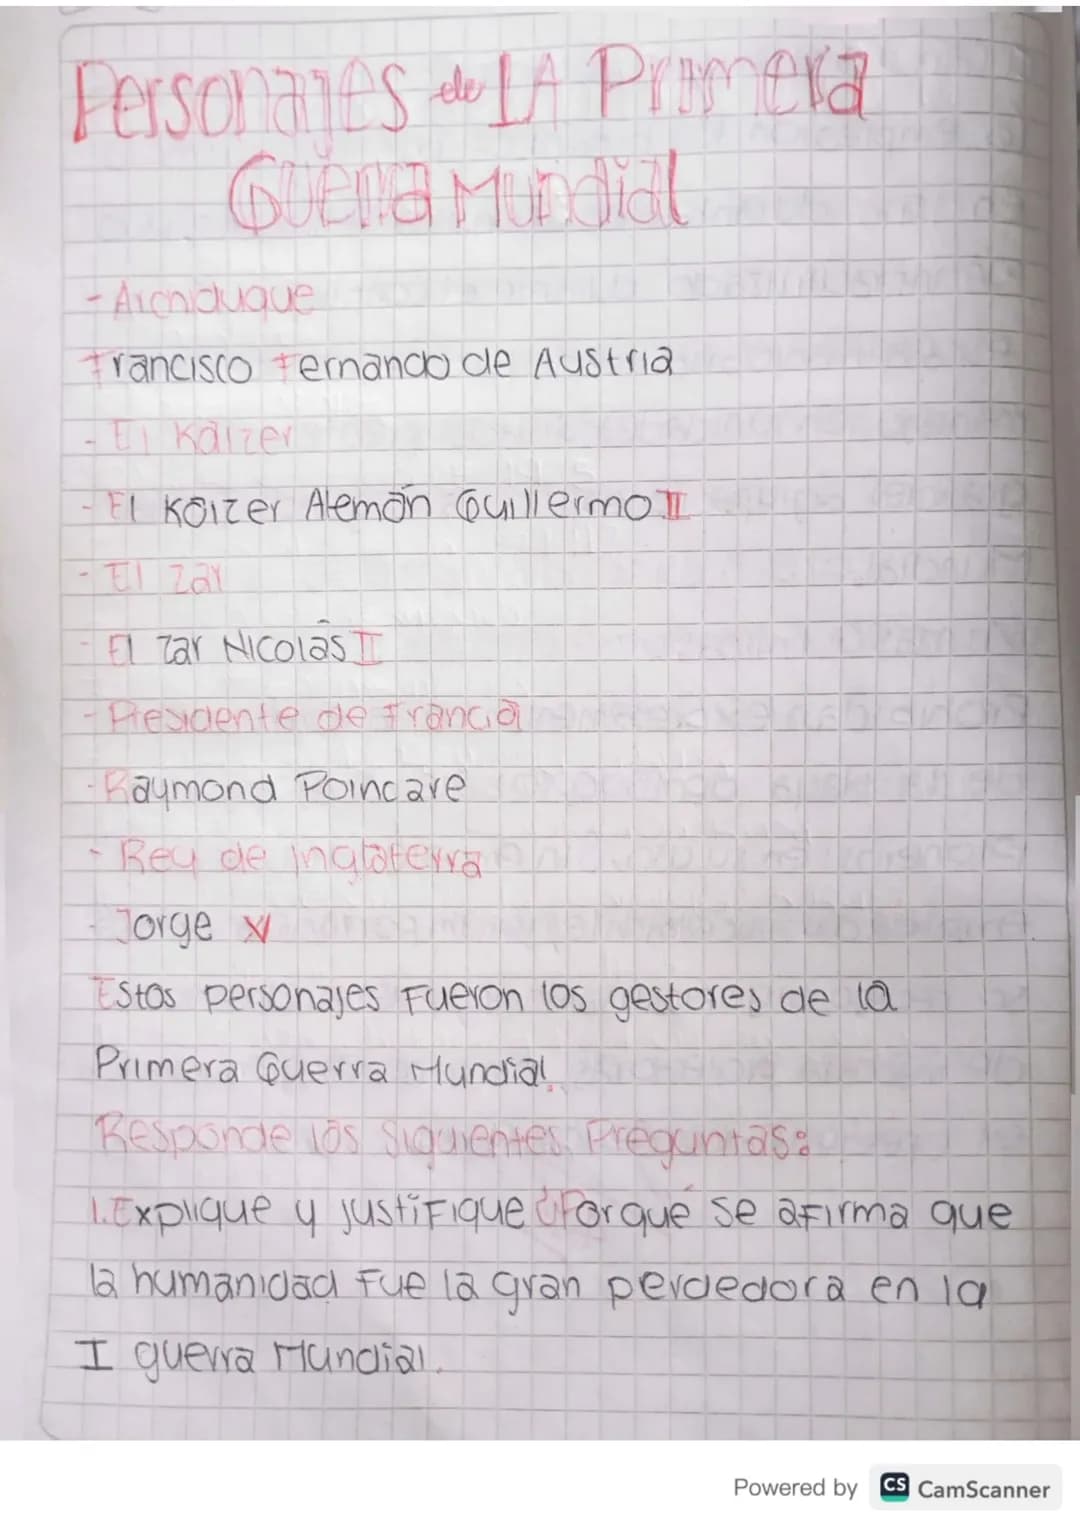 Personajes de LA Primera
Guerra Mundial
- Archiduque
Francisco Fernando de Austria
- El Kaizer
- El Kaizer Alemán Guillermo II
- El Zar
- El zar Nicolás II
- Presidente de Francia
- Raymond Poincare
- Rey de inglaterra
- Jorge V
Estos personajes Fueron los gestores de la
Primera Guerra Mundial.
Responde las Siguientes Preguntas:
1. Explique y justifique ¿Por qué se afirma que
la humanidad fue la gran perdedora en la
I guerra Mundial.
Powered by CS CamScanner